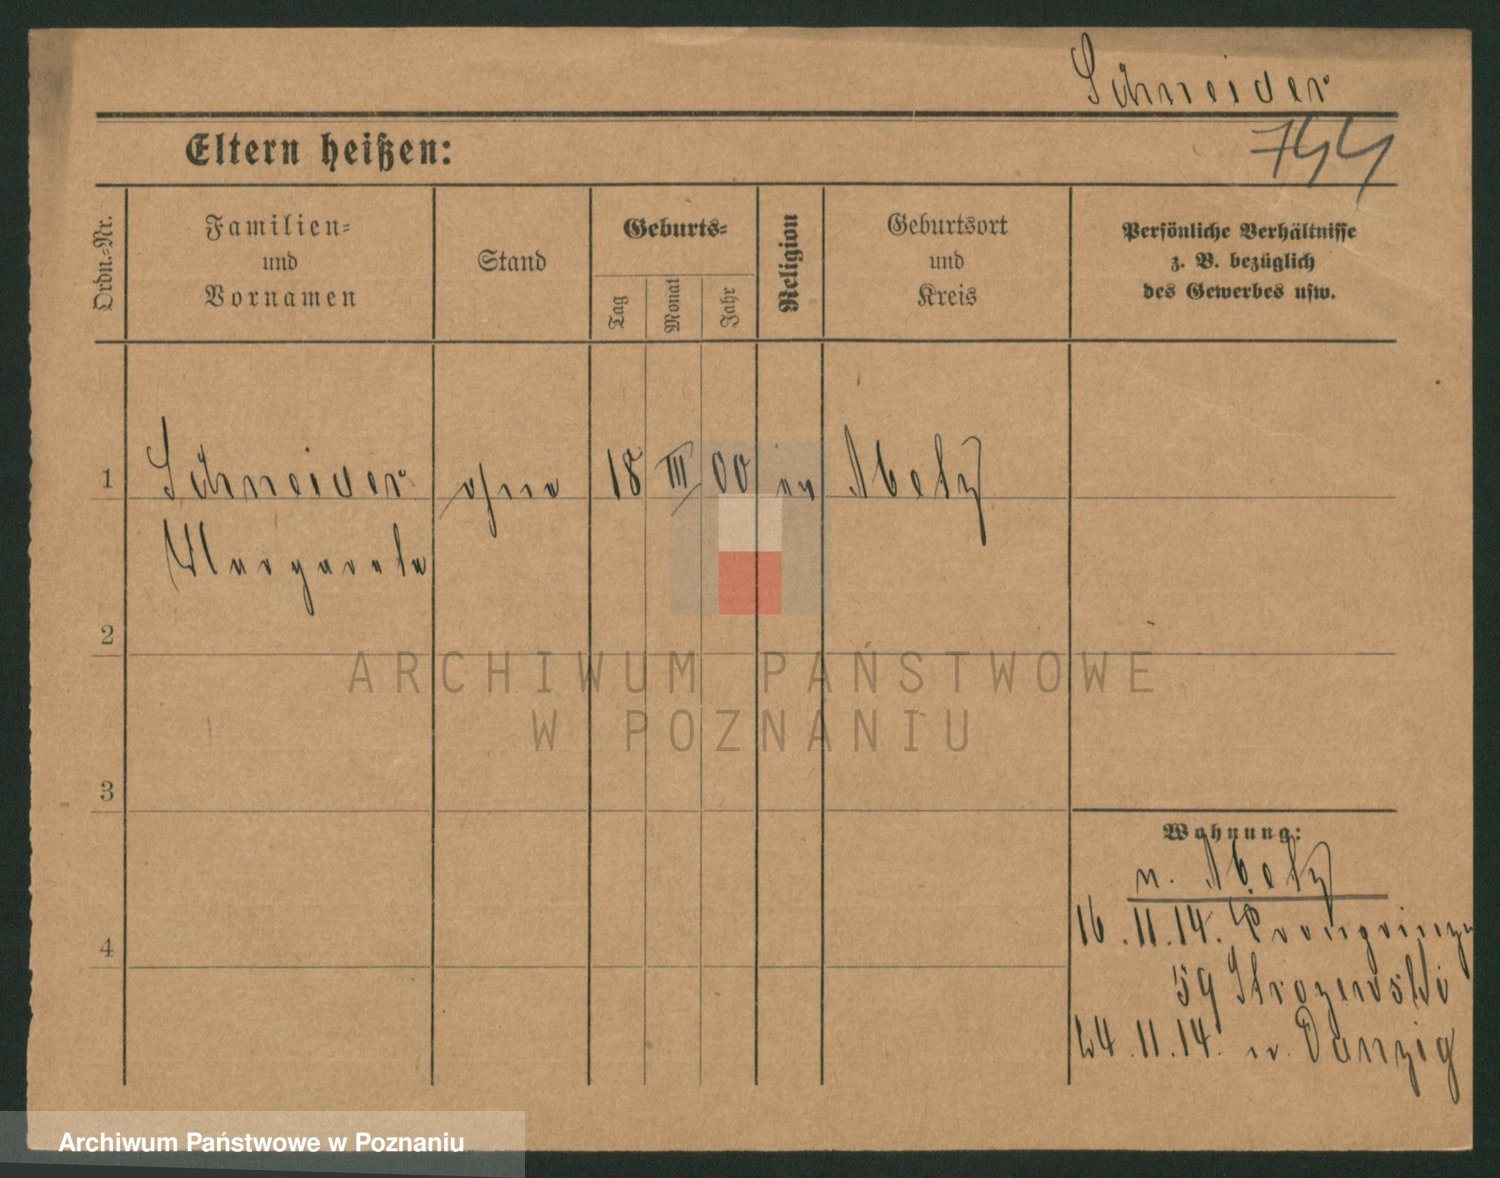 Schneider
744
Eltern heißen:
Ordn.-Nr.
Familien-
und
Vornamen
Stand
Geburts-
Tag
Monat
Jahr
Religion
Geburtsort
und
Kreis
Persönliche Verhältnisse
z. B. bezüglich
des Gewerbes usw.
1 Schneider ohne 18 III 00 ev Metz
Margarete
2
ARCHIWUM PAŃSTWOWE
W POZNANIU
3
Wohnung:
n. Metz
4
16.11.14. Kronprinzen
59 Strozewski
24.11.14. n. Danzig
Archiwum Państwowe w Poznaniu